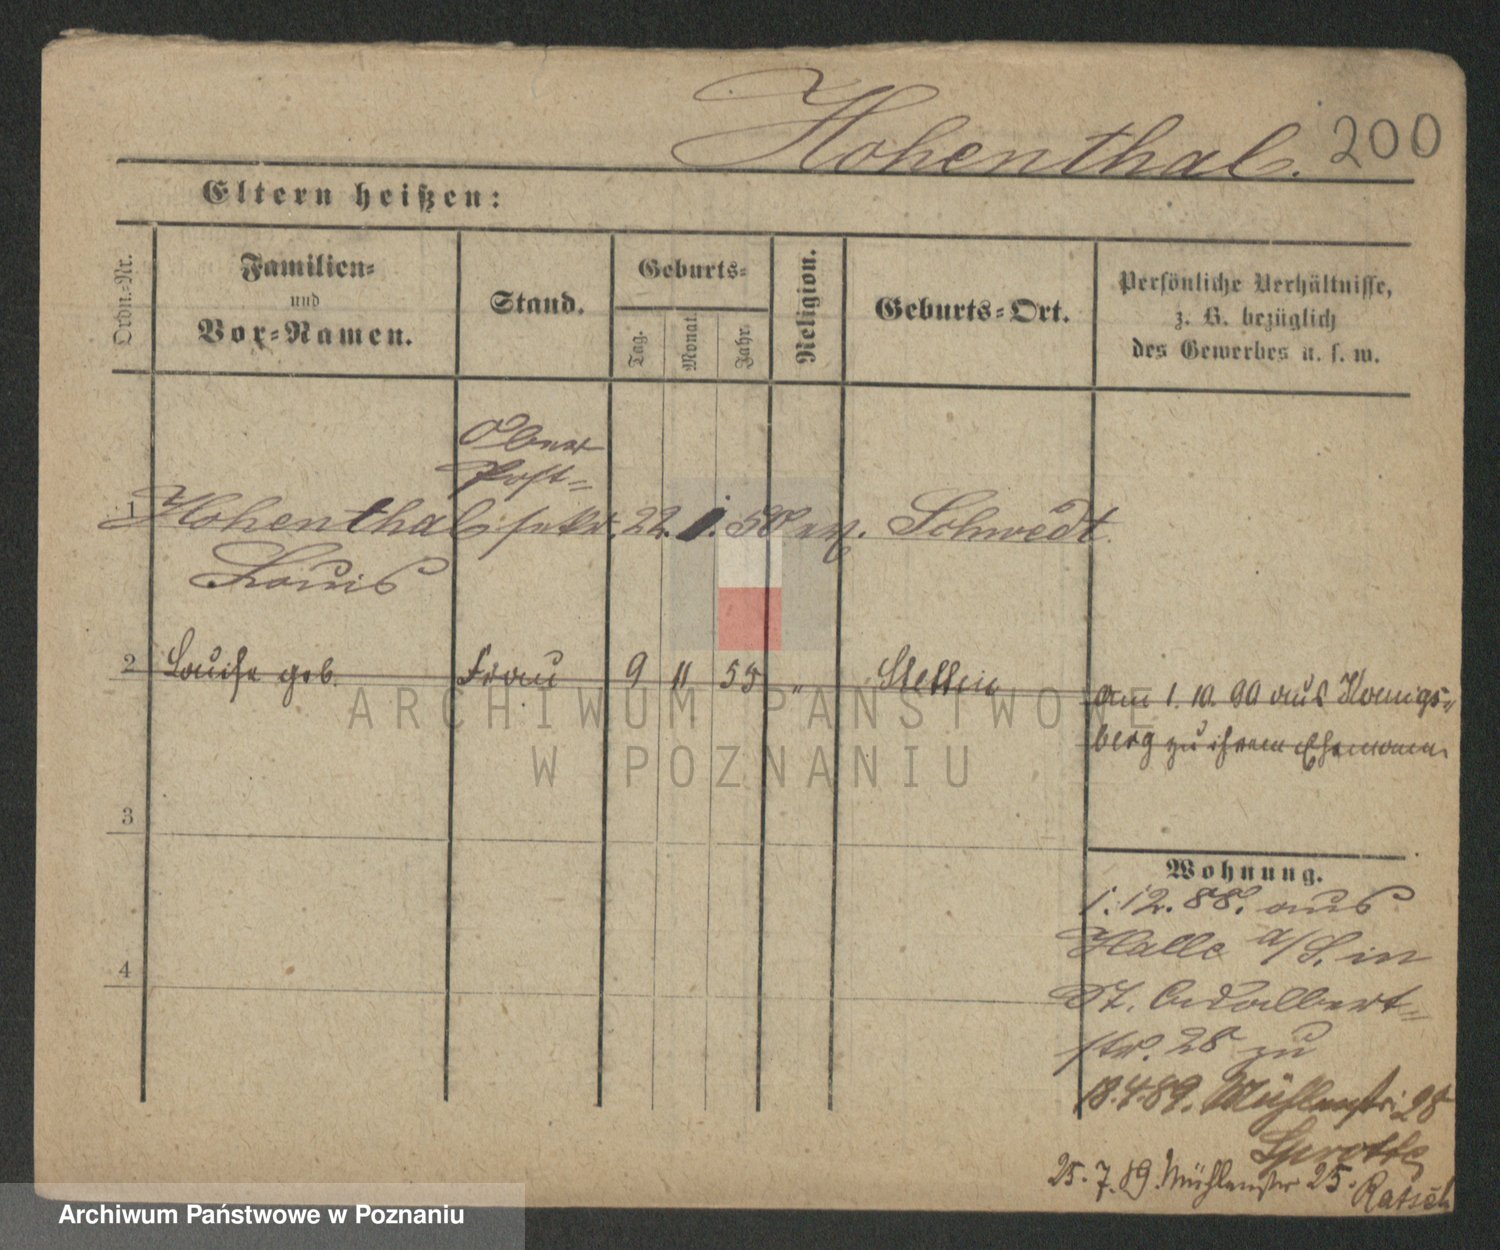 Hohenthal. 200
Eltern heißen:
Ordn.-Nr.
Familien-
und
Vor-Namen.
Stand.
Geburts-
Tag.
Monat.
Jahr.
Religion.
Geburts-Ort.
Persönliche Verhältnisse,
z. B. bezüglich
des Gewerbes u. s. w.
Ober
Post-
1 Hohenthal sekr. 22. 1. 50 ev. Schwedt
Louis
2 Louise geb. Frau 9 11 55 " Stettin
am 1. 10. 90 aus Koenigs-
berg zu ihrem Ehemann
3
4
Wohnung.
1. 12. 88. aus
Halle a/S. in
St. Adalbert-
str. 28 zu
18.4.89. Mühlenstr. 28
Sprotte
25. 7. 89. Mühlenstr 25.
ARCHIWUM PAŃSTWOWE
W POZNANIU
Archiwum Państwowe w Poznaniu